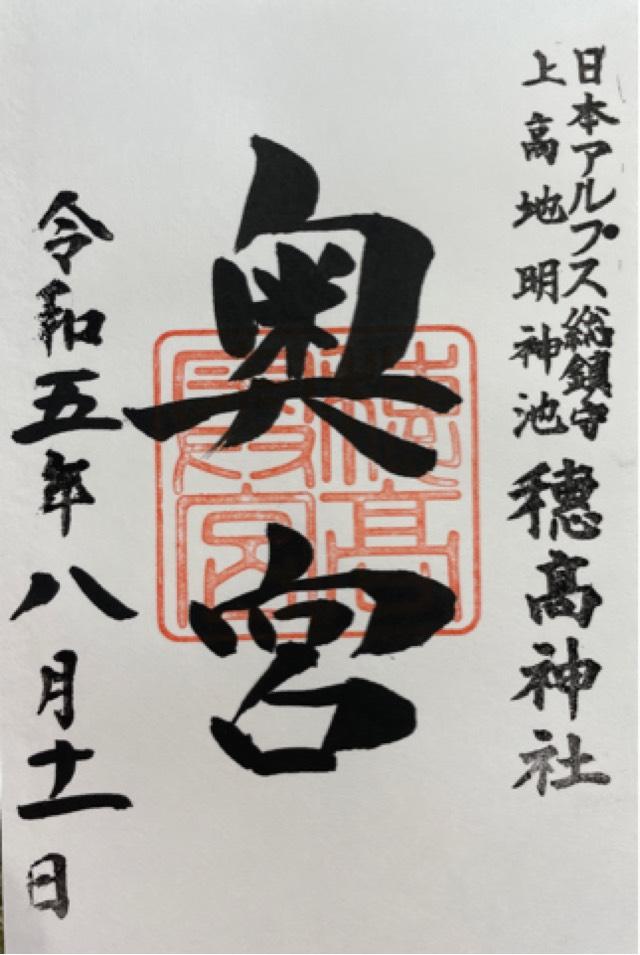 日本アルプス総鎮守
上高地明神池
穂髙神社
奥宮
穂高
奥宮
令和五年八月十一日